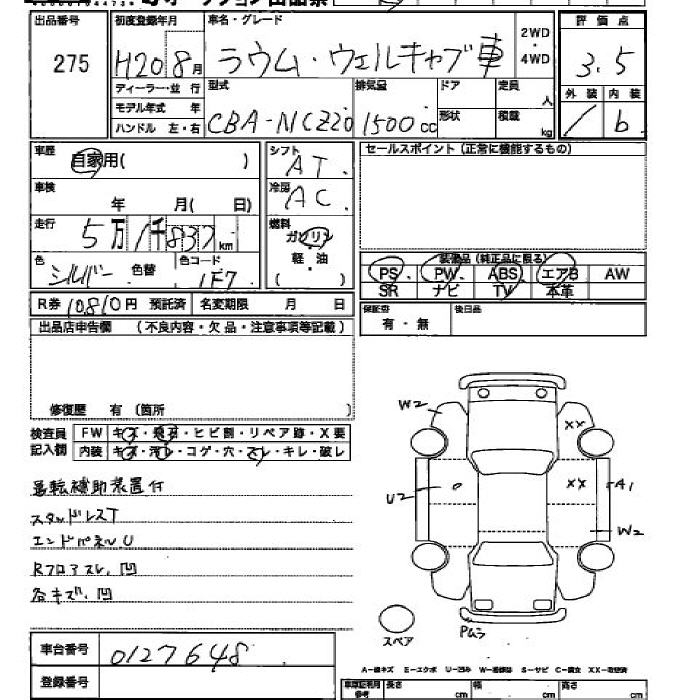 出品番号 初度登録年月 車名・グレード 2WD・4WD 評価点
275 H20 8月 ラウム・ウェルキャブ車 3.5
ディーラー・並 行 型式 排気量 ドア 定員 人 外装 内装
モデル年式 年 CBA-NCZ20 1500cc 形状 積載 kg / b
ハンドル 左・右
車歴 自家用( ) シフト AT セールスポイント(正常に機能するもの)
車検 年 月( 日) 冷房 AC
走行 5万1千837km 燃料 ガソリン
色 シルバー 色替 色コード 1F7 軽・油 ( )
装備品(純正品に限る)
PS PW ABS エアB AW
SR ナビ TV 本革
R券 10810円 預託済 名変期限 月 日
保証書 有・無 後日品
出品店申告欄 (不良内容・欠品・注意事項等記載)
修復歴 有 (箇所 )
検査員 FW キズ・飛石・ヒビ割・リペア跡・X要
記入欄 内装 キズ・汚レ・コゲ・穴・スレ・キレ・破レ
運転補助装置付
スタッドレスT
エンドパネルU
Rフロアスレ、凹
各キズ、凹
W2
XX
U2 XX A1
W2
スペア Pムラ
車台番号 0127648
登録番号
A-線キズ E-エクボ U-凹み W-補修跡 S-サビ C-腐食 XX-取替済
車庫証明用参考 長さ cm 幅 cm 高さ cm